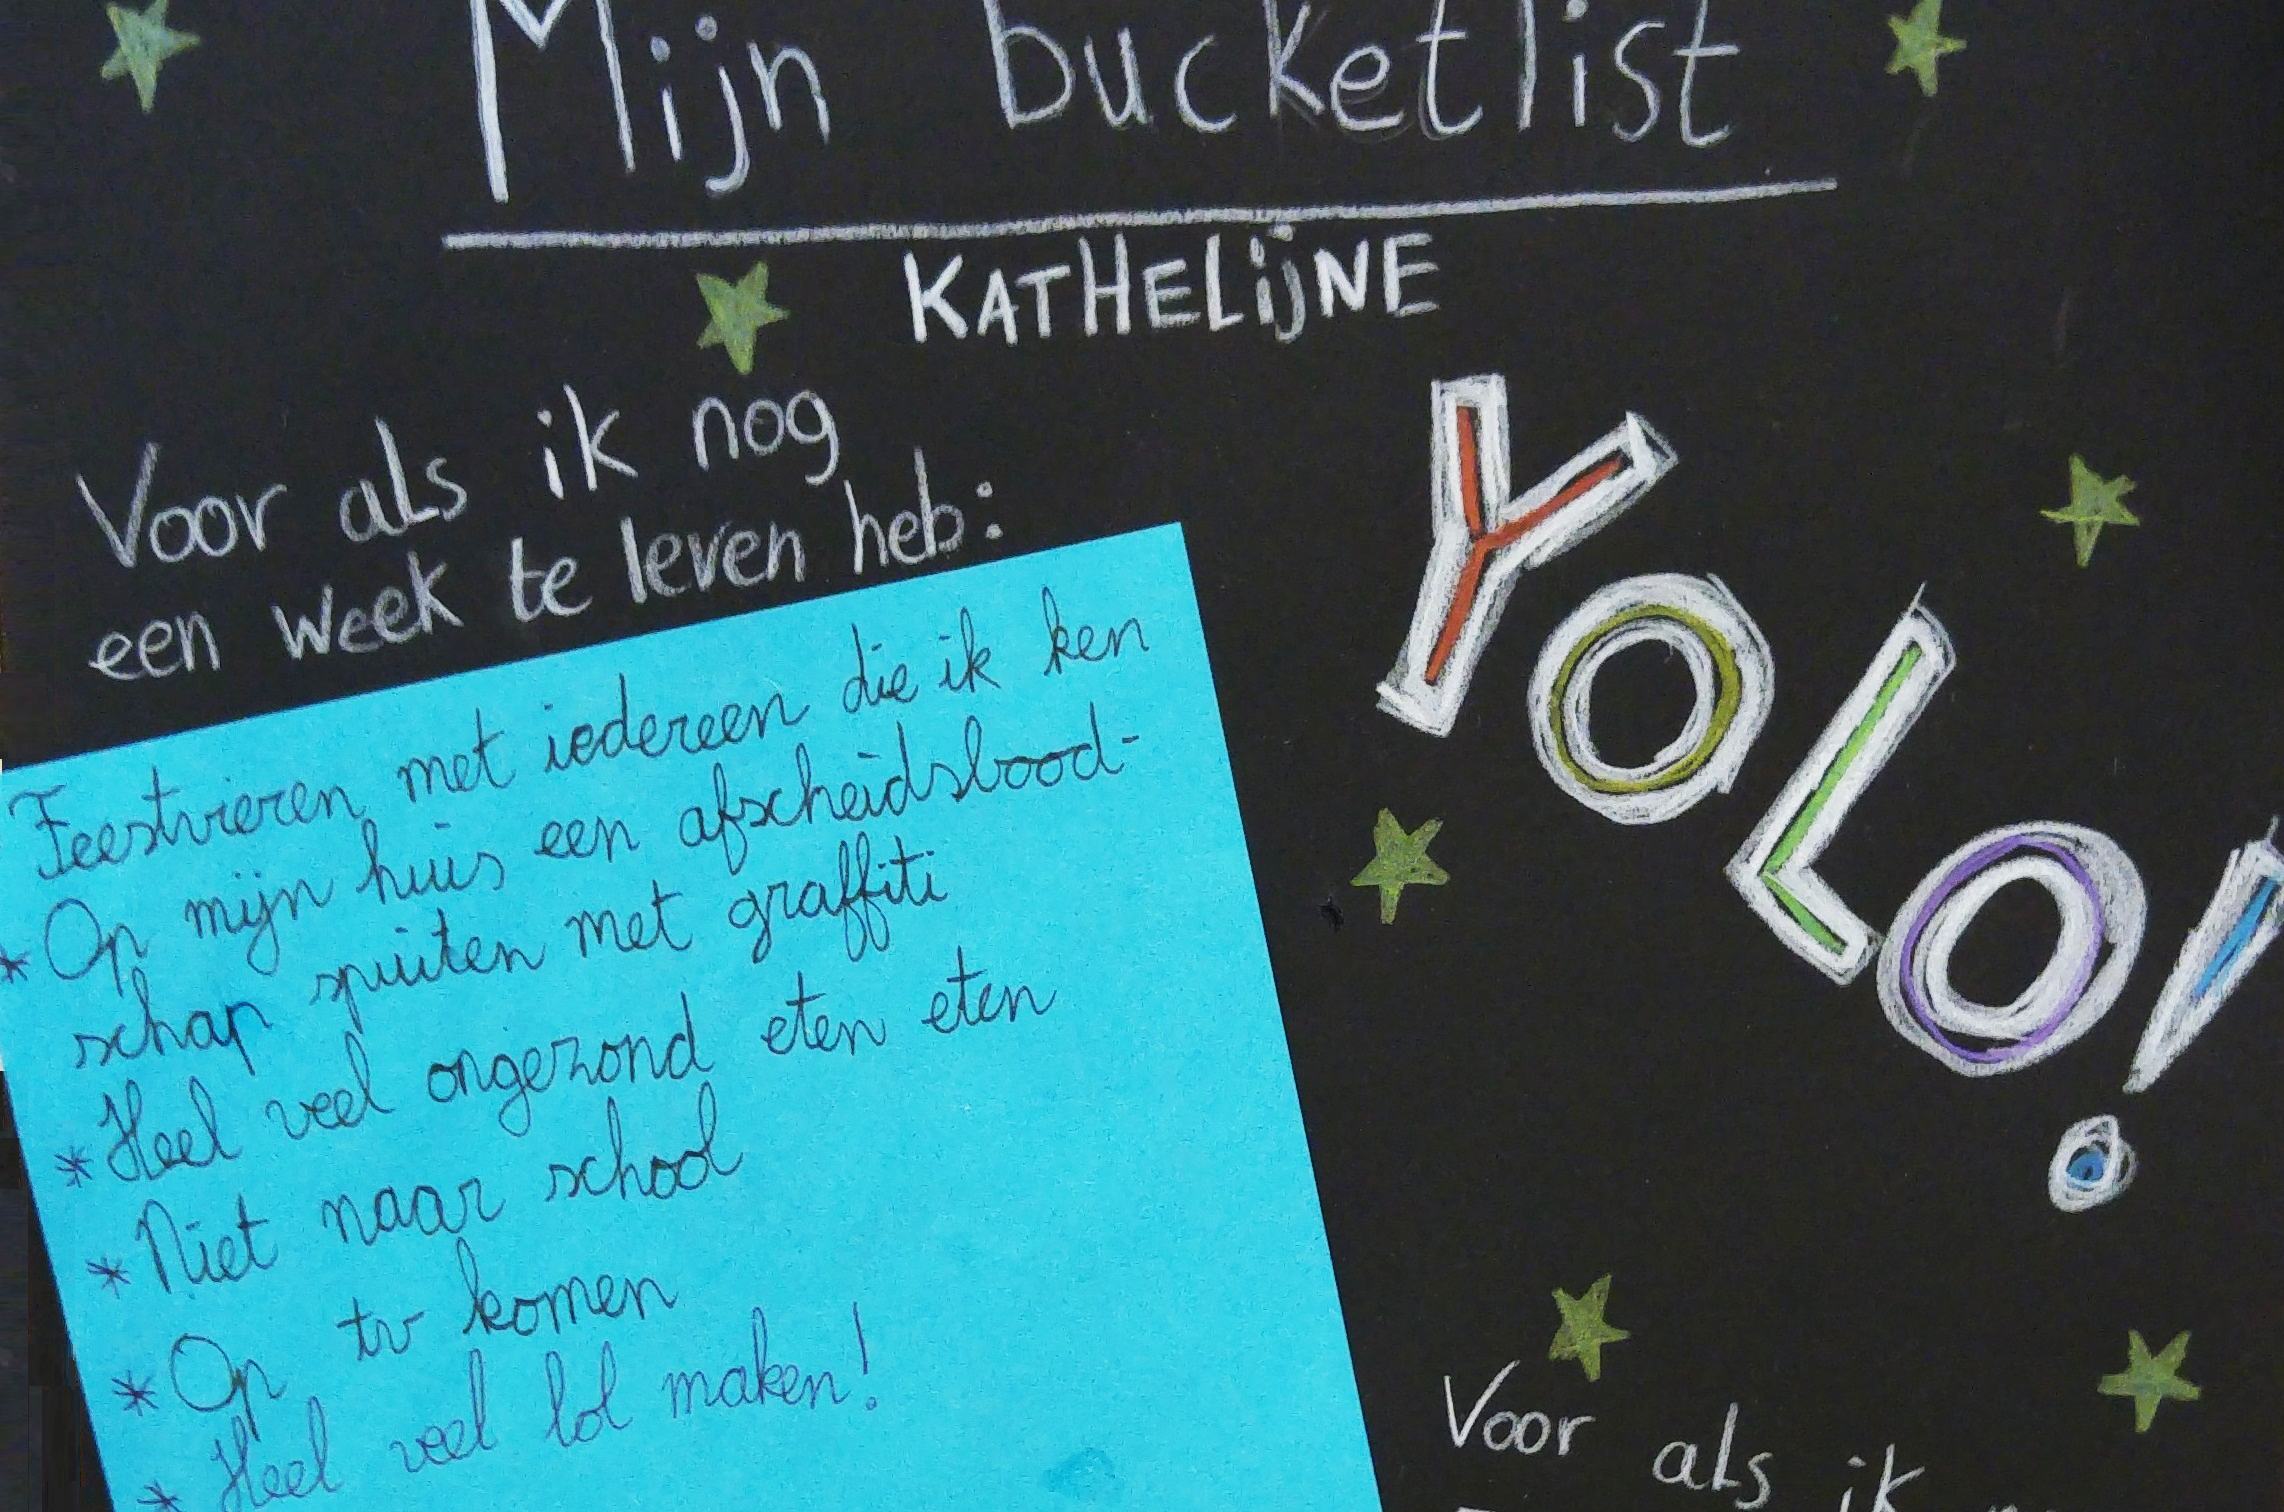 Mijn bucketlist
KATHELIJNE
Voor als ik nog
een week te leven heb:
YOLO!
Feestvieren met iedereen die ik ken
* Op mijn huis een afscheidsbood-
schap spuiten met graffiti
* Heel veel ongezond eten eten
* Niet naar school
* Op tv komen
* Heel veel lol maken!
Voor als ik